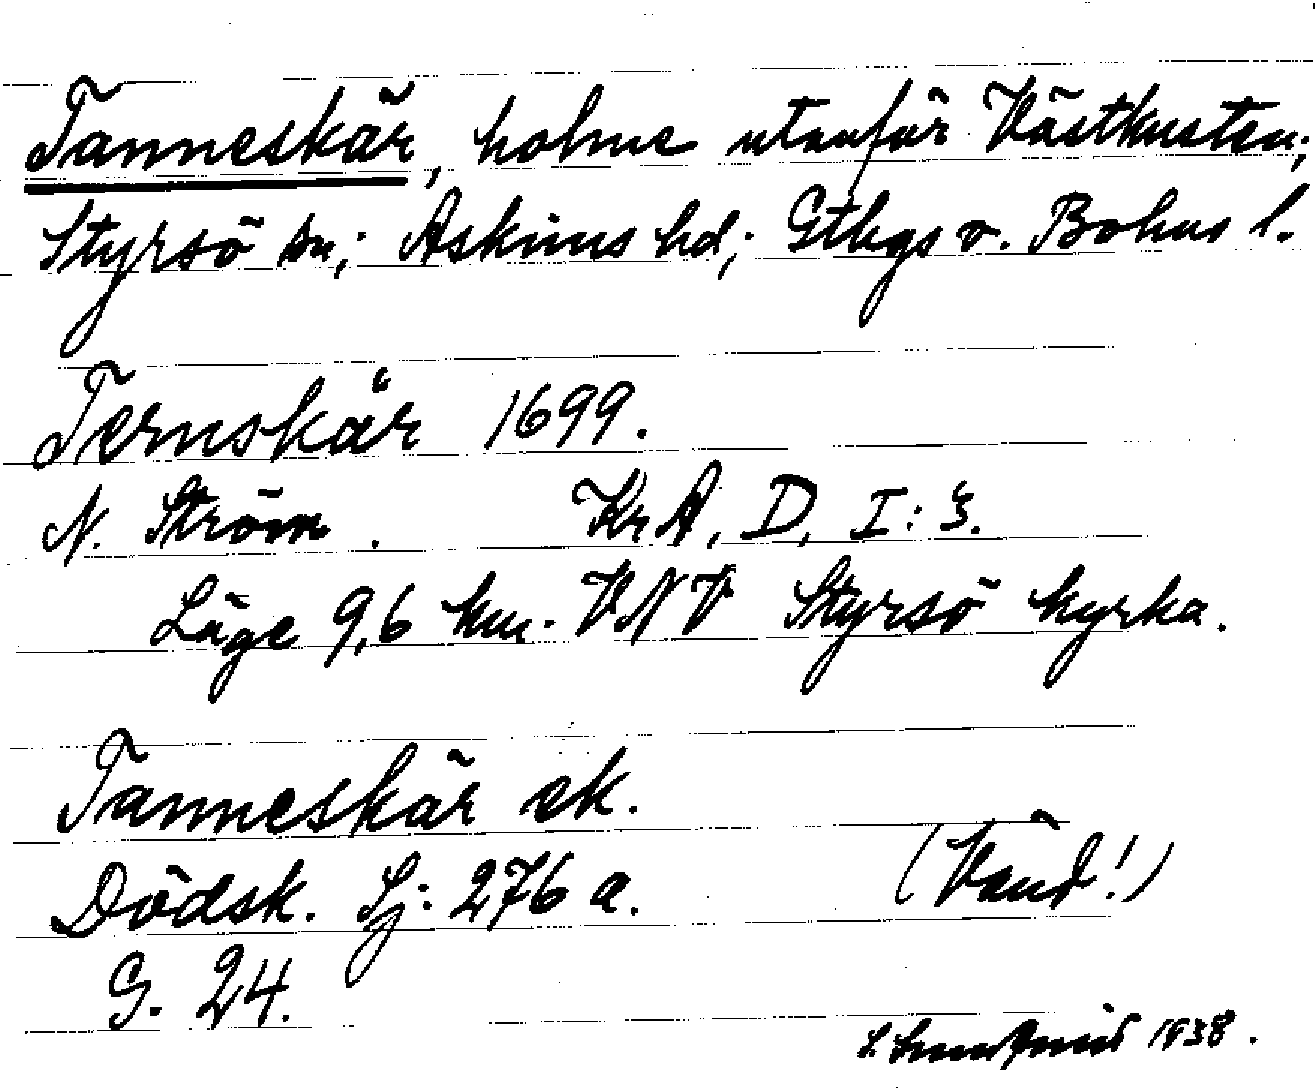 Tanneskär, holme utanför Västkusten;
Styrsö sn; Askims hd; Gtbgs o. Bohus l.
Ternskär 1699.
N. Ström. KrA, D, I: 3.
Läge 9,6 km. VNV Styrsö kyrka.
Tanneskär ek.
Dödsk. Sj: 276 a. (Vänd!)
G. 24.
1938.